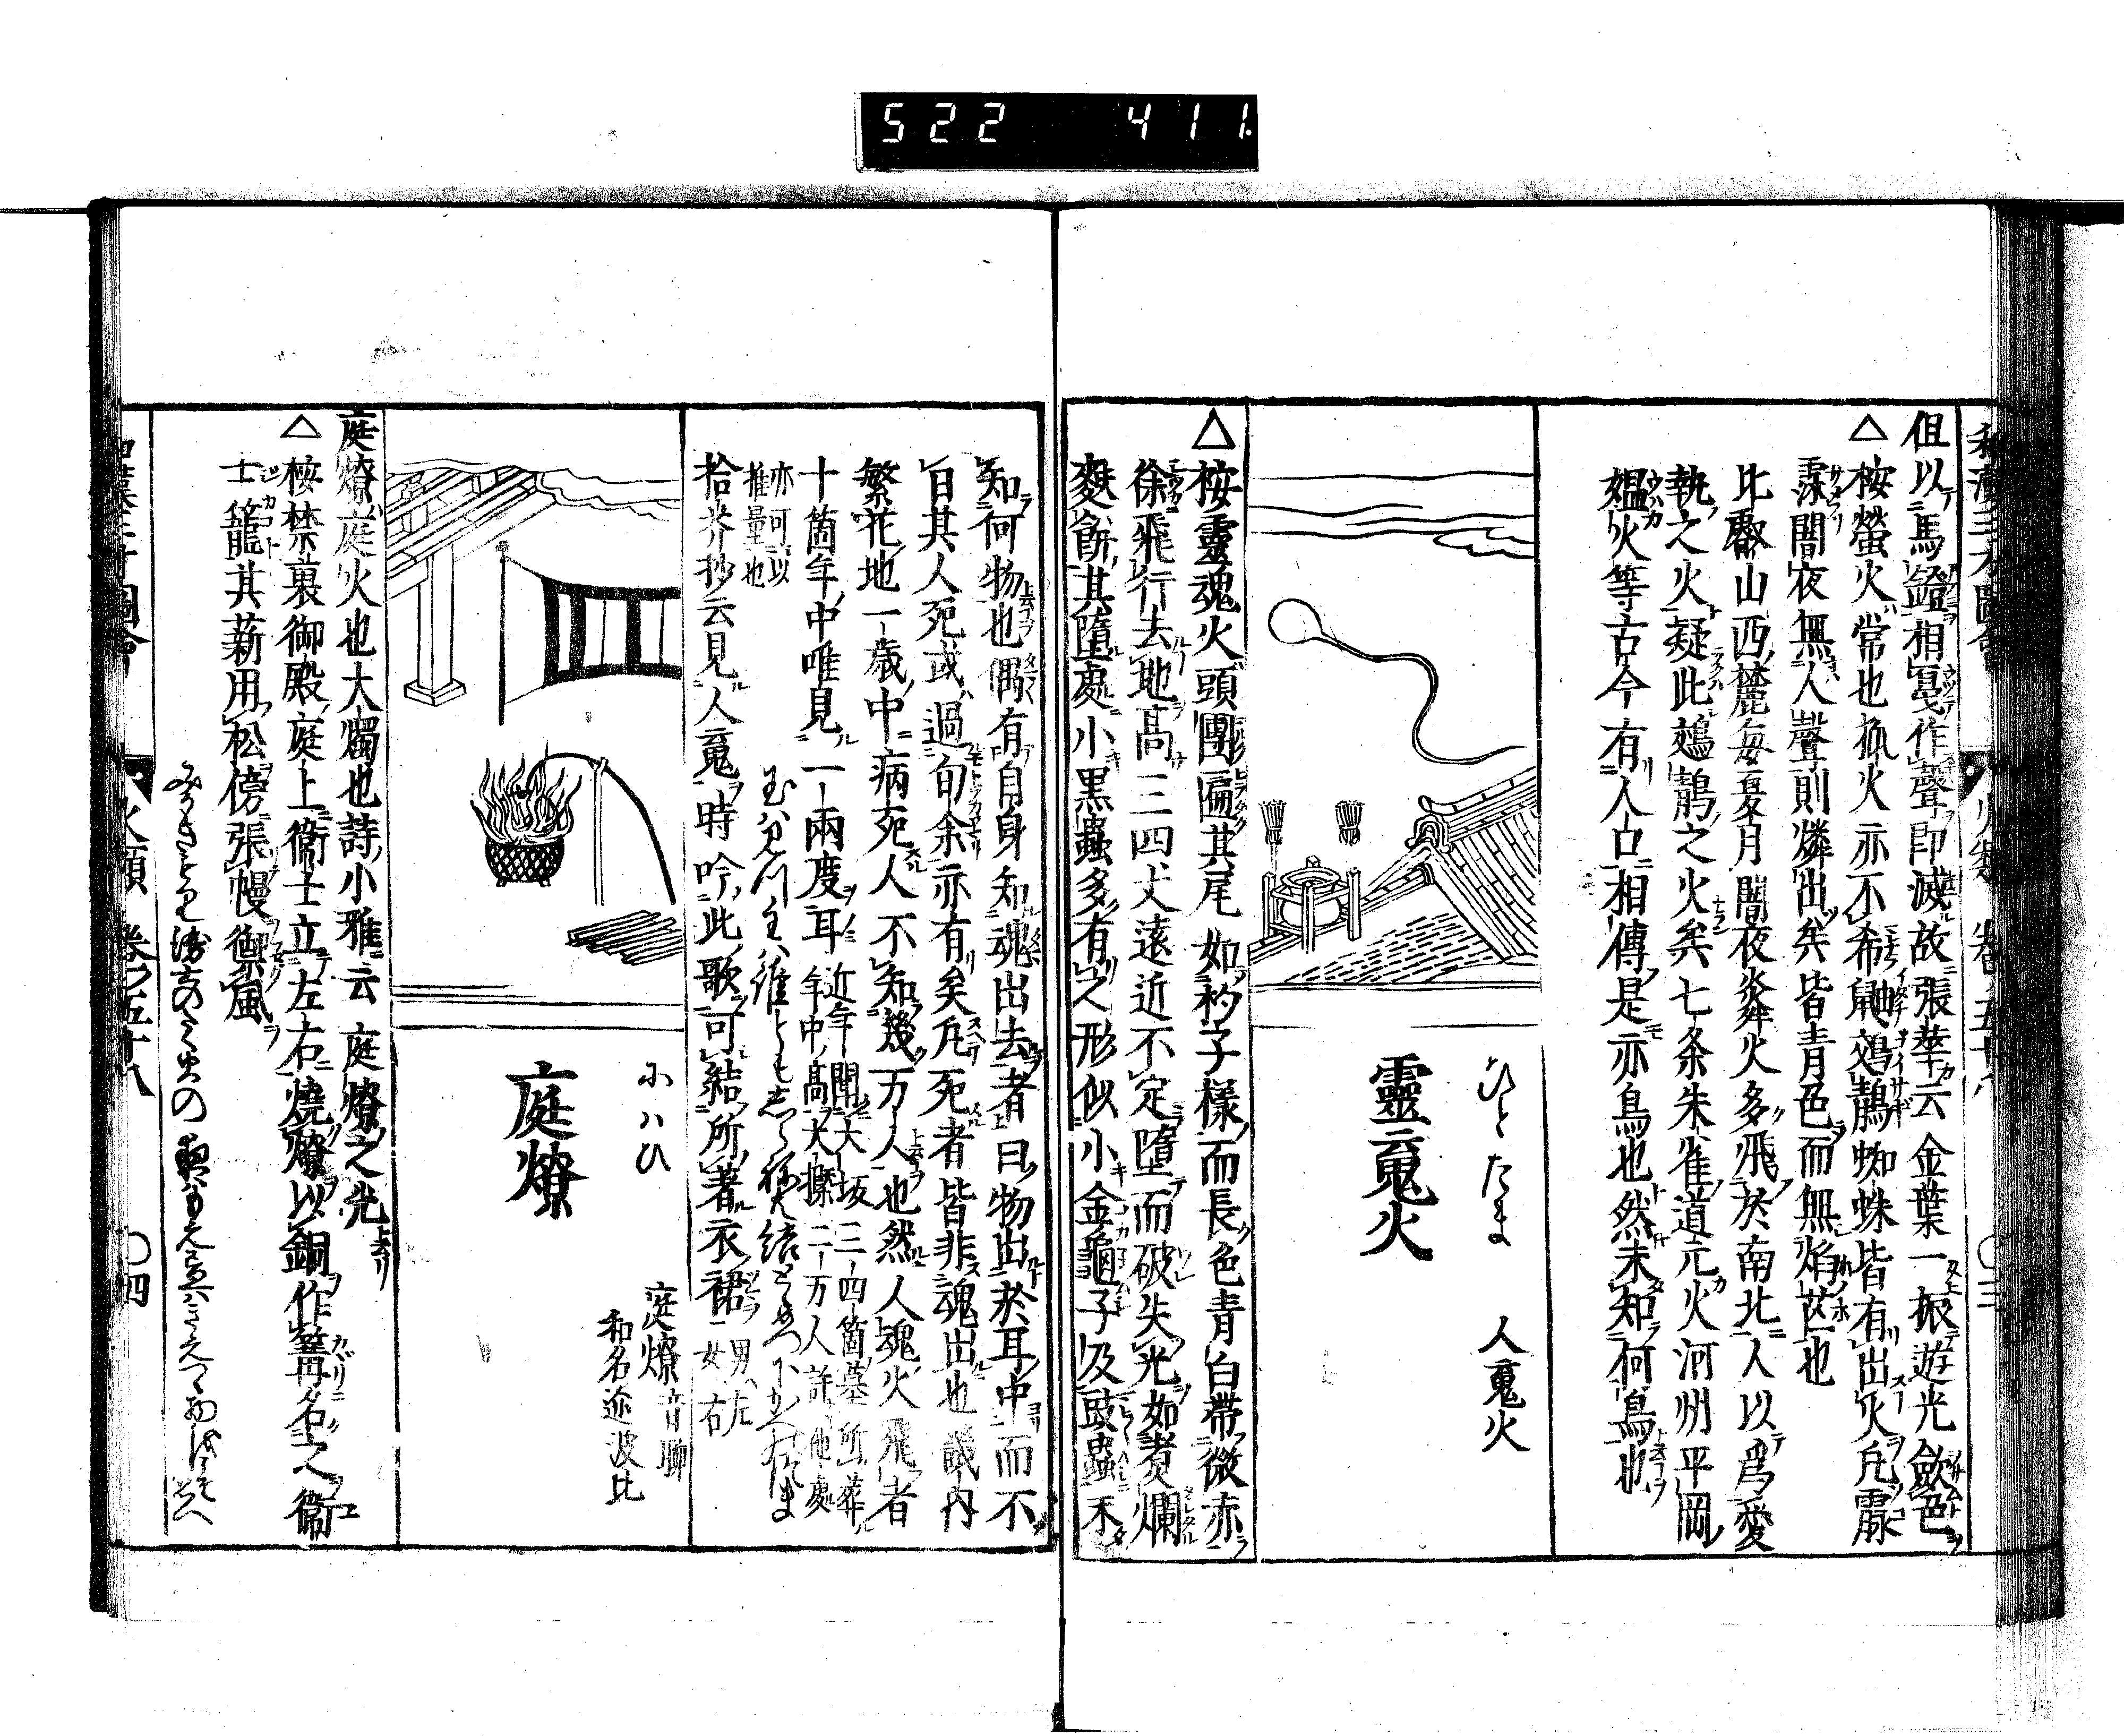 522 411.
和漢三才圖會 火類 卷ノ五十八 〇三
但以馬鐙相戞作聲即滅故張華云金葉一振遊光歛色
△ 桉螢火常也狐火亦不希鼬鵁鶄蜘蛛皆有出火凡霡
霂闇夜無人聲則燐出矣皆青色而無焰芒也
比叡山西麓毎夏月闇夜㷠火多飛於南北人以爲愛
執之火疑此鵁鶄之火矣七条朱雀道元火河州平岡
媼火等古今有人口相傳是亦鳥也然未知何鳥也
ひとたま
人䰟火
靈䰟火
△ 桉靈魂火頭團匾其尾如杓子樣而長色青白帶微赤
徐飛行去地高三四丈遠近不定墮而破失光如煑爛
麩餅其墮處小黒蟲多有之形似小金龜子及豉蟲未
知何物也偶有自身知魂出去者曰物出於耳中而不
日其人死或過旬余亦有矣凡死者皆非魂出也畿内
繁花地一歳中病死人不知幾万人也然人魂火飛者
十箇年中唯見一兩度耳
近年聞大坂三四箇墓所葬
年中髙大㮣二万人許他處
亦可以
推量也
拾芥抄云見人䰟時吟此歌可結所著衣裙
男左
女右
玉ハみつ主ハ誰ともしらねとも結ひとめつ下かへのつま
にハひ
庭燎
庭燎 音聊
和名迩波比
庭燎庭火也大燭也詩小雅云庭燎之光
△ 桉禁裏御殿庭上衞士立左右燒燎以銅作篝名之衞
士籠其薪用松傍張幔禦風
みかきもり衛士のたく火の夜ハもえ昼ハきえつゝ物をこそ思へ
和漢三才圖會 火類 卷ノ五十八 〇四